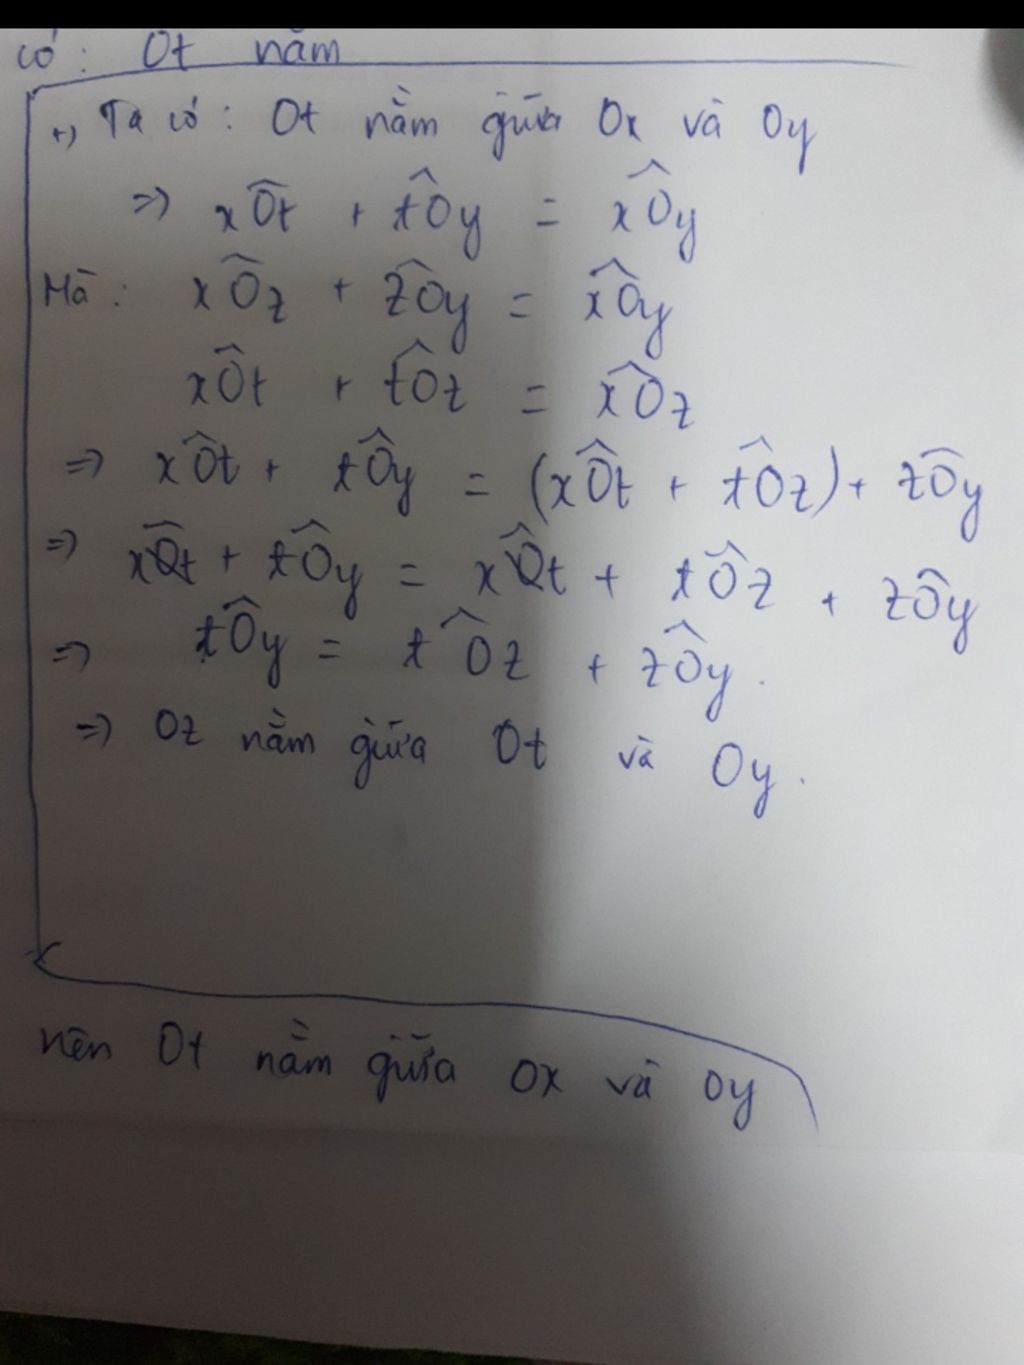 có: Ot nằm
+) Ta có: Ot nằm giữa Ox và Oy
=> xÔt + tÔy = xÔy
Mà: xÔz + zÔy = xÔy
xÔt + tÔz = xÔz
=> xÔt + tÔy = (xÔt + tÔz) + zÔy
=> xÔt + tÔy = xÔt + tÔz + zÔy
=> tÔy = tÔz + zÔy.
=> Oz nằm giữa Ot và Oy.
nên Ot nằm giữa Ox và Oy